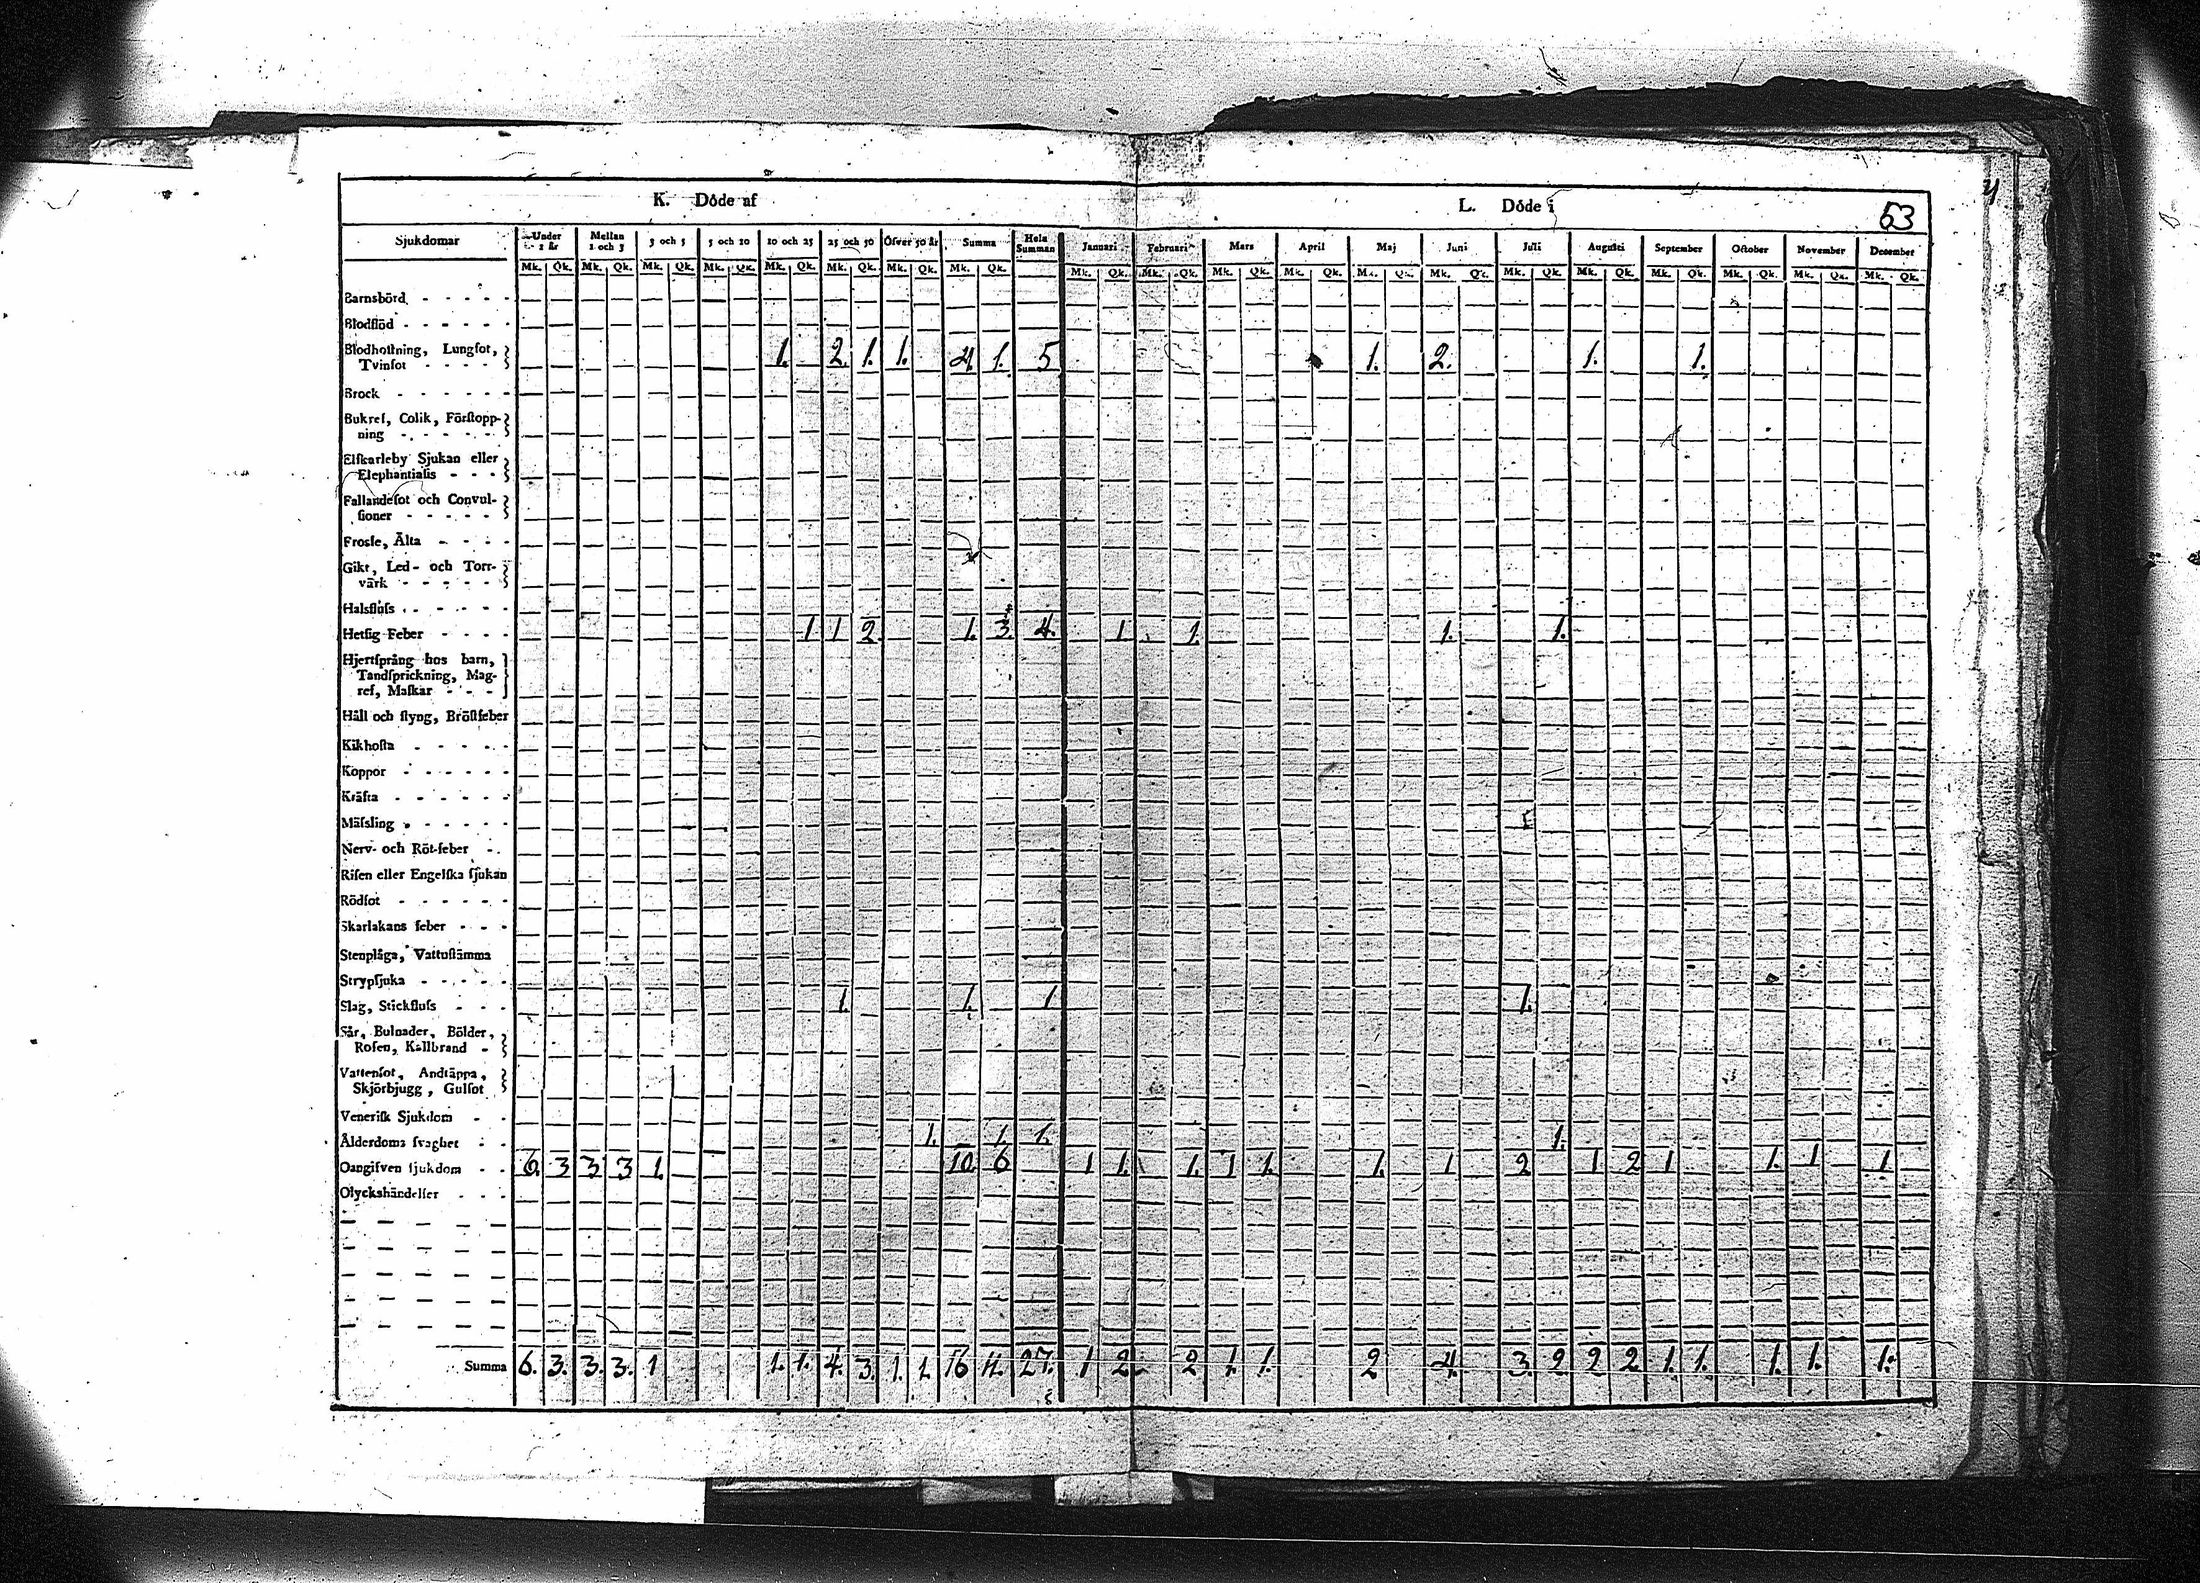 K. Döde af
L. Döde i
53
Sjukdomar Under 1 år Mellan 1 och 3 3 och 5 5 och 10 10 och 25 25 och 50 Öfver 50 år Summa Hela Summan Januari Februari Mars April Maj Juni Juli Augusti September October November December
Mk. Qk. Mk. Qk. Mk. Qk. Mk. Qk. Mk. Qk. Mk. Qk. Mk. Qk. Mk. Qk. Mk. Qk. Mk. Qk. Mk. Qk. Mk. Qk. Mk. Qk. Mk. Qk. Mk. Qk. Mk. Qk. Mk. Qk. Mk. Qk. Mk. Qk. Mk. Qk.
Barnsbörd
Blodflöd
Blodhoſtning, Lungſot,
Tvinſot 1. 2. 1. 1. 4. 1. 5 1. 2. 1. 1.
Brock
Bukref, Colik, Förſtopp-
ning
Elfkarleby Sjukan eller
Elephantiaſis
Fallandeſot och Convul-
ſioner
Frosſe, Älta
Gikt, Led- och Torr-
värk
Halsfluſs
Hetſig Feber 1 1 2 1. 3. 4. 1 1. 1. 1.
Hjertſprång hos barn,
Tandſprickning, Mag-
ref, Maſkar
Håll och ſtyng, Bröſtfeber
Kikhoſta
Koppor
Kräfta
Mäſsling
Nerv- och Röt-feber
Riſen eller Engelſka ſjukan
Rödſot
Skarlakans feber
Stenplåga, Vattuſtämma
Strypſjuka
Slag, Stickfluſs 1. 1. 1 1.
Sår, Bulnader, Bölder,
Roſen, Kallbrand
Vattenſot, Andtäppa,
Skjörbjugg, Gulſot
Veneriſk Sjukdom
Ålderdoms ſvaghet 1. 1. 1. 1.
Oangifven ſjukdom 6. 3 3 3 1. 10. 6 1 1. 1. 1 1. 1. 1 2 1 2 1 1. 1 1
Olyckshändelſer
Summa 6. 3. 3. 3. 1 1. 1. 4. 3. 1. 1. 16 11. 27. 1 2. 2 1. 1. 2 4. 3. 2 2 2 1. 1. 1. 1. 1.